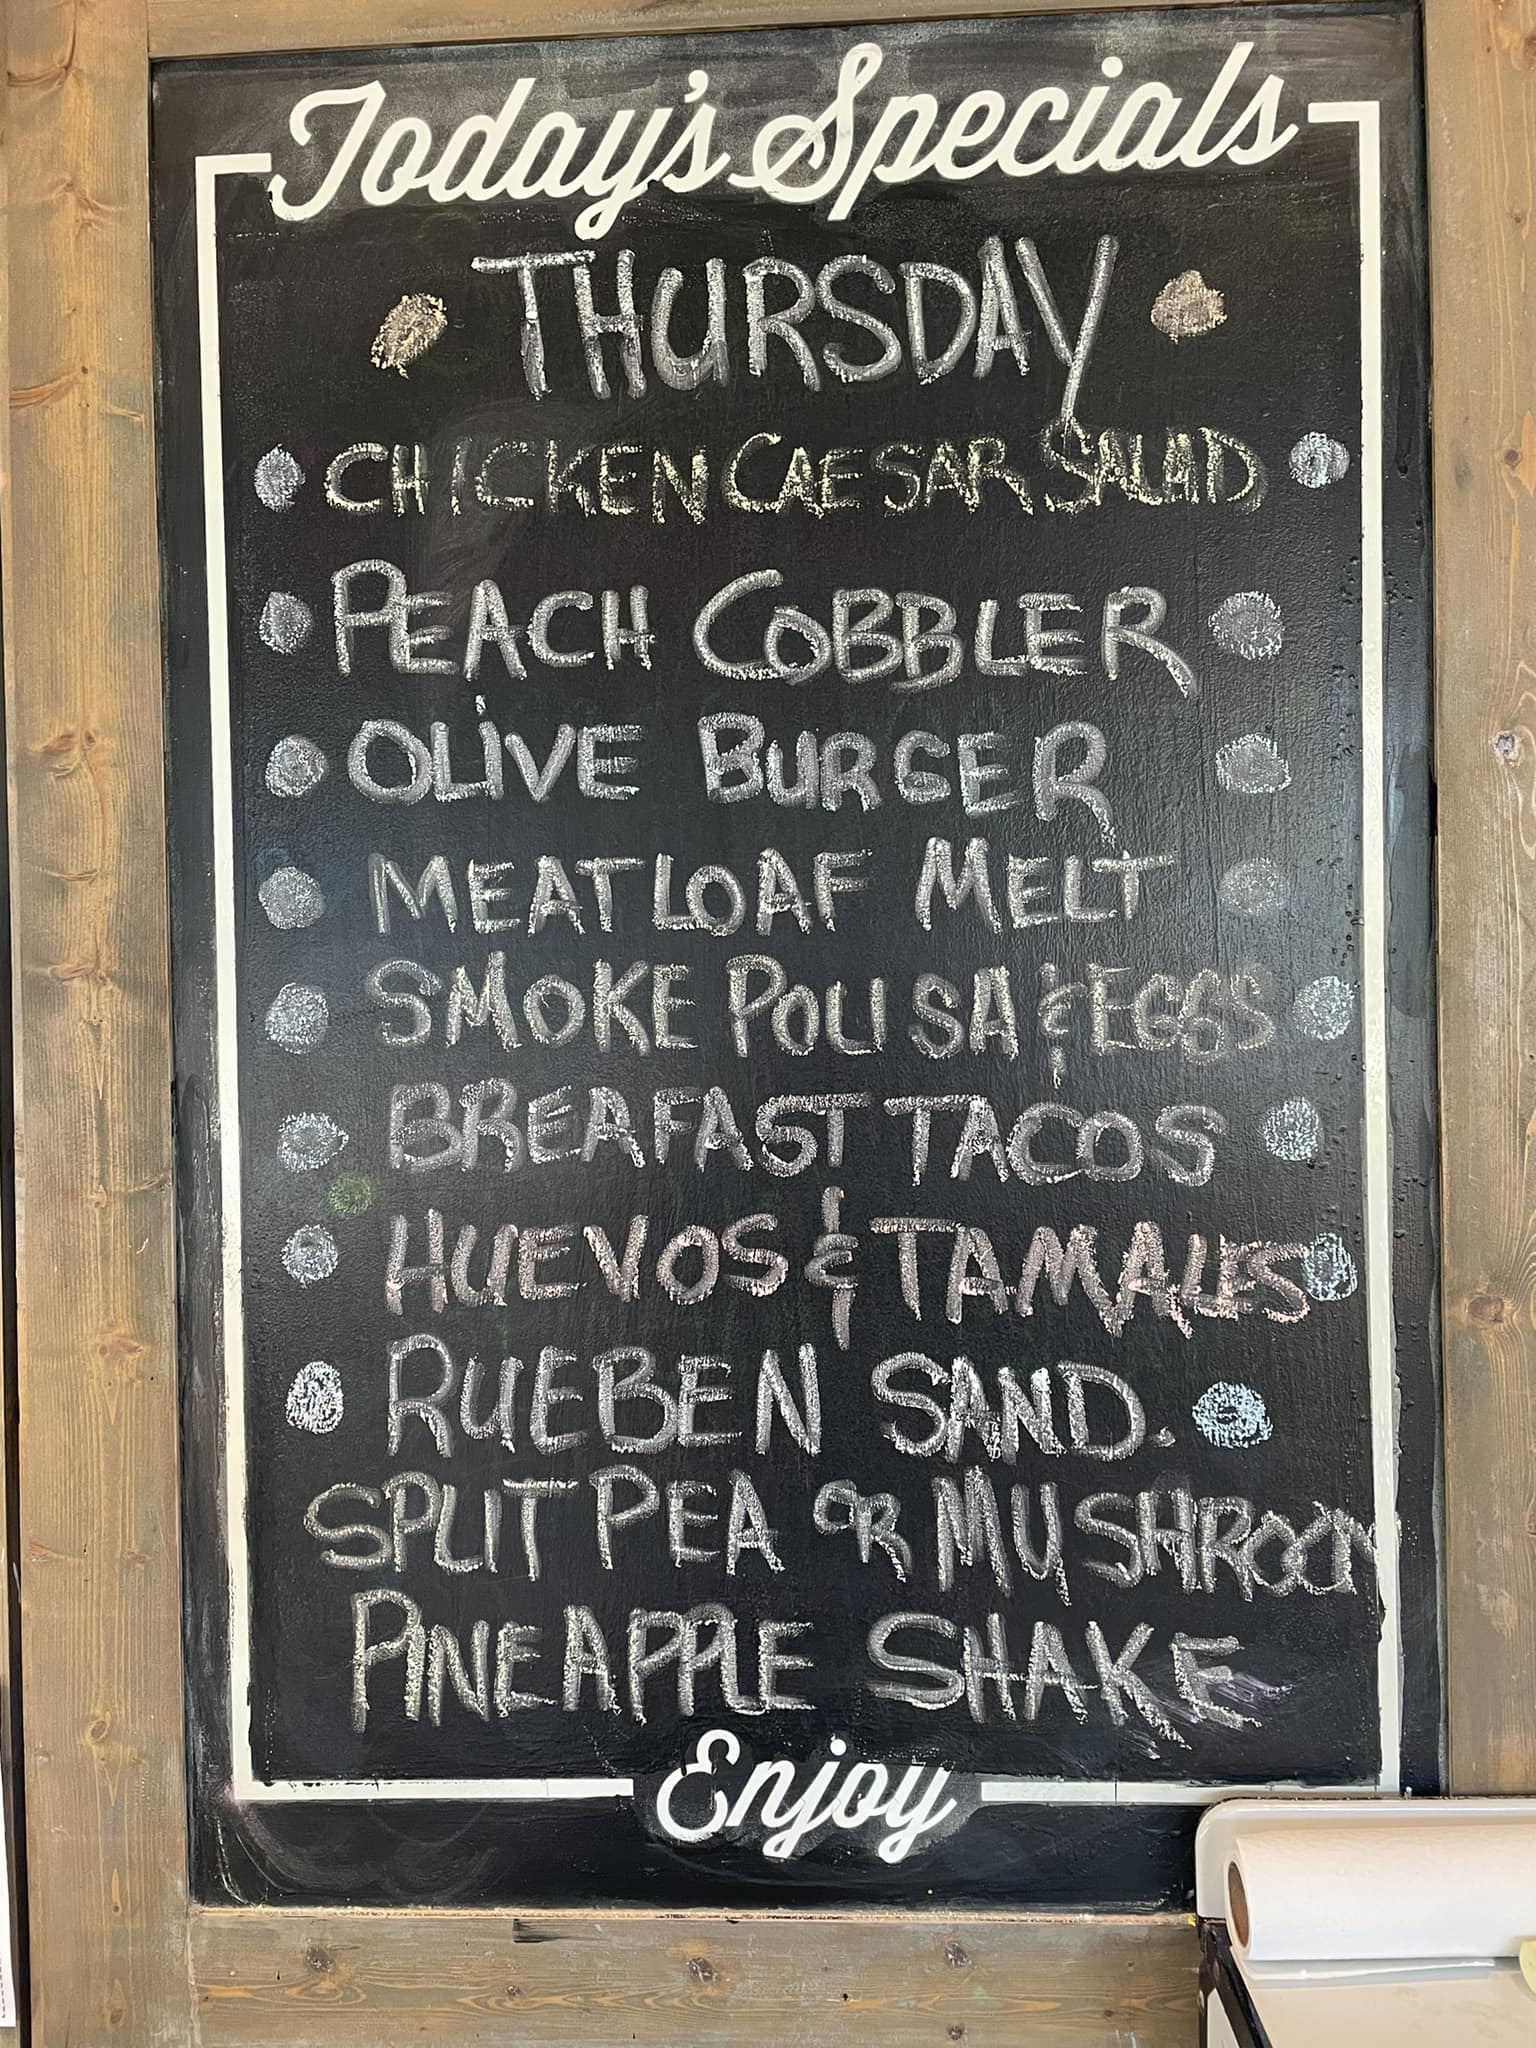 Today's Specials
THURSDAY
CHICKEN CAESAR SALAD
PEACH COBBLER
OLiVE BURGER
MEATLOAF MELT
SMOKE POLISA & EGGS
BREAFAST TACOS
HUEVOS & TAMALES
RUEBEN SAND.
SPLIT PEA OR MUSHROOM
PINEAPPLE SHAKE
Enjoy